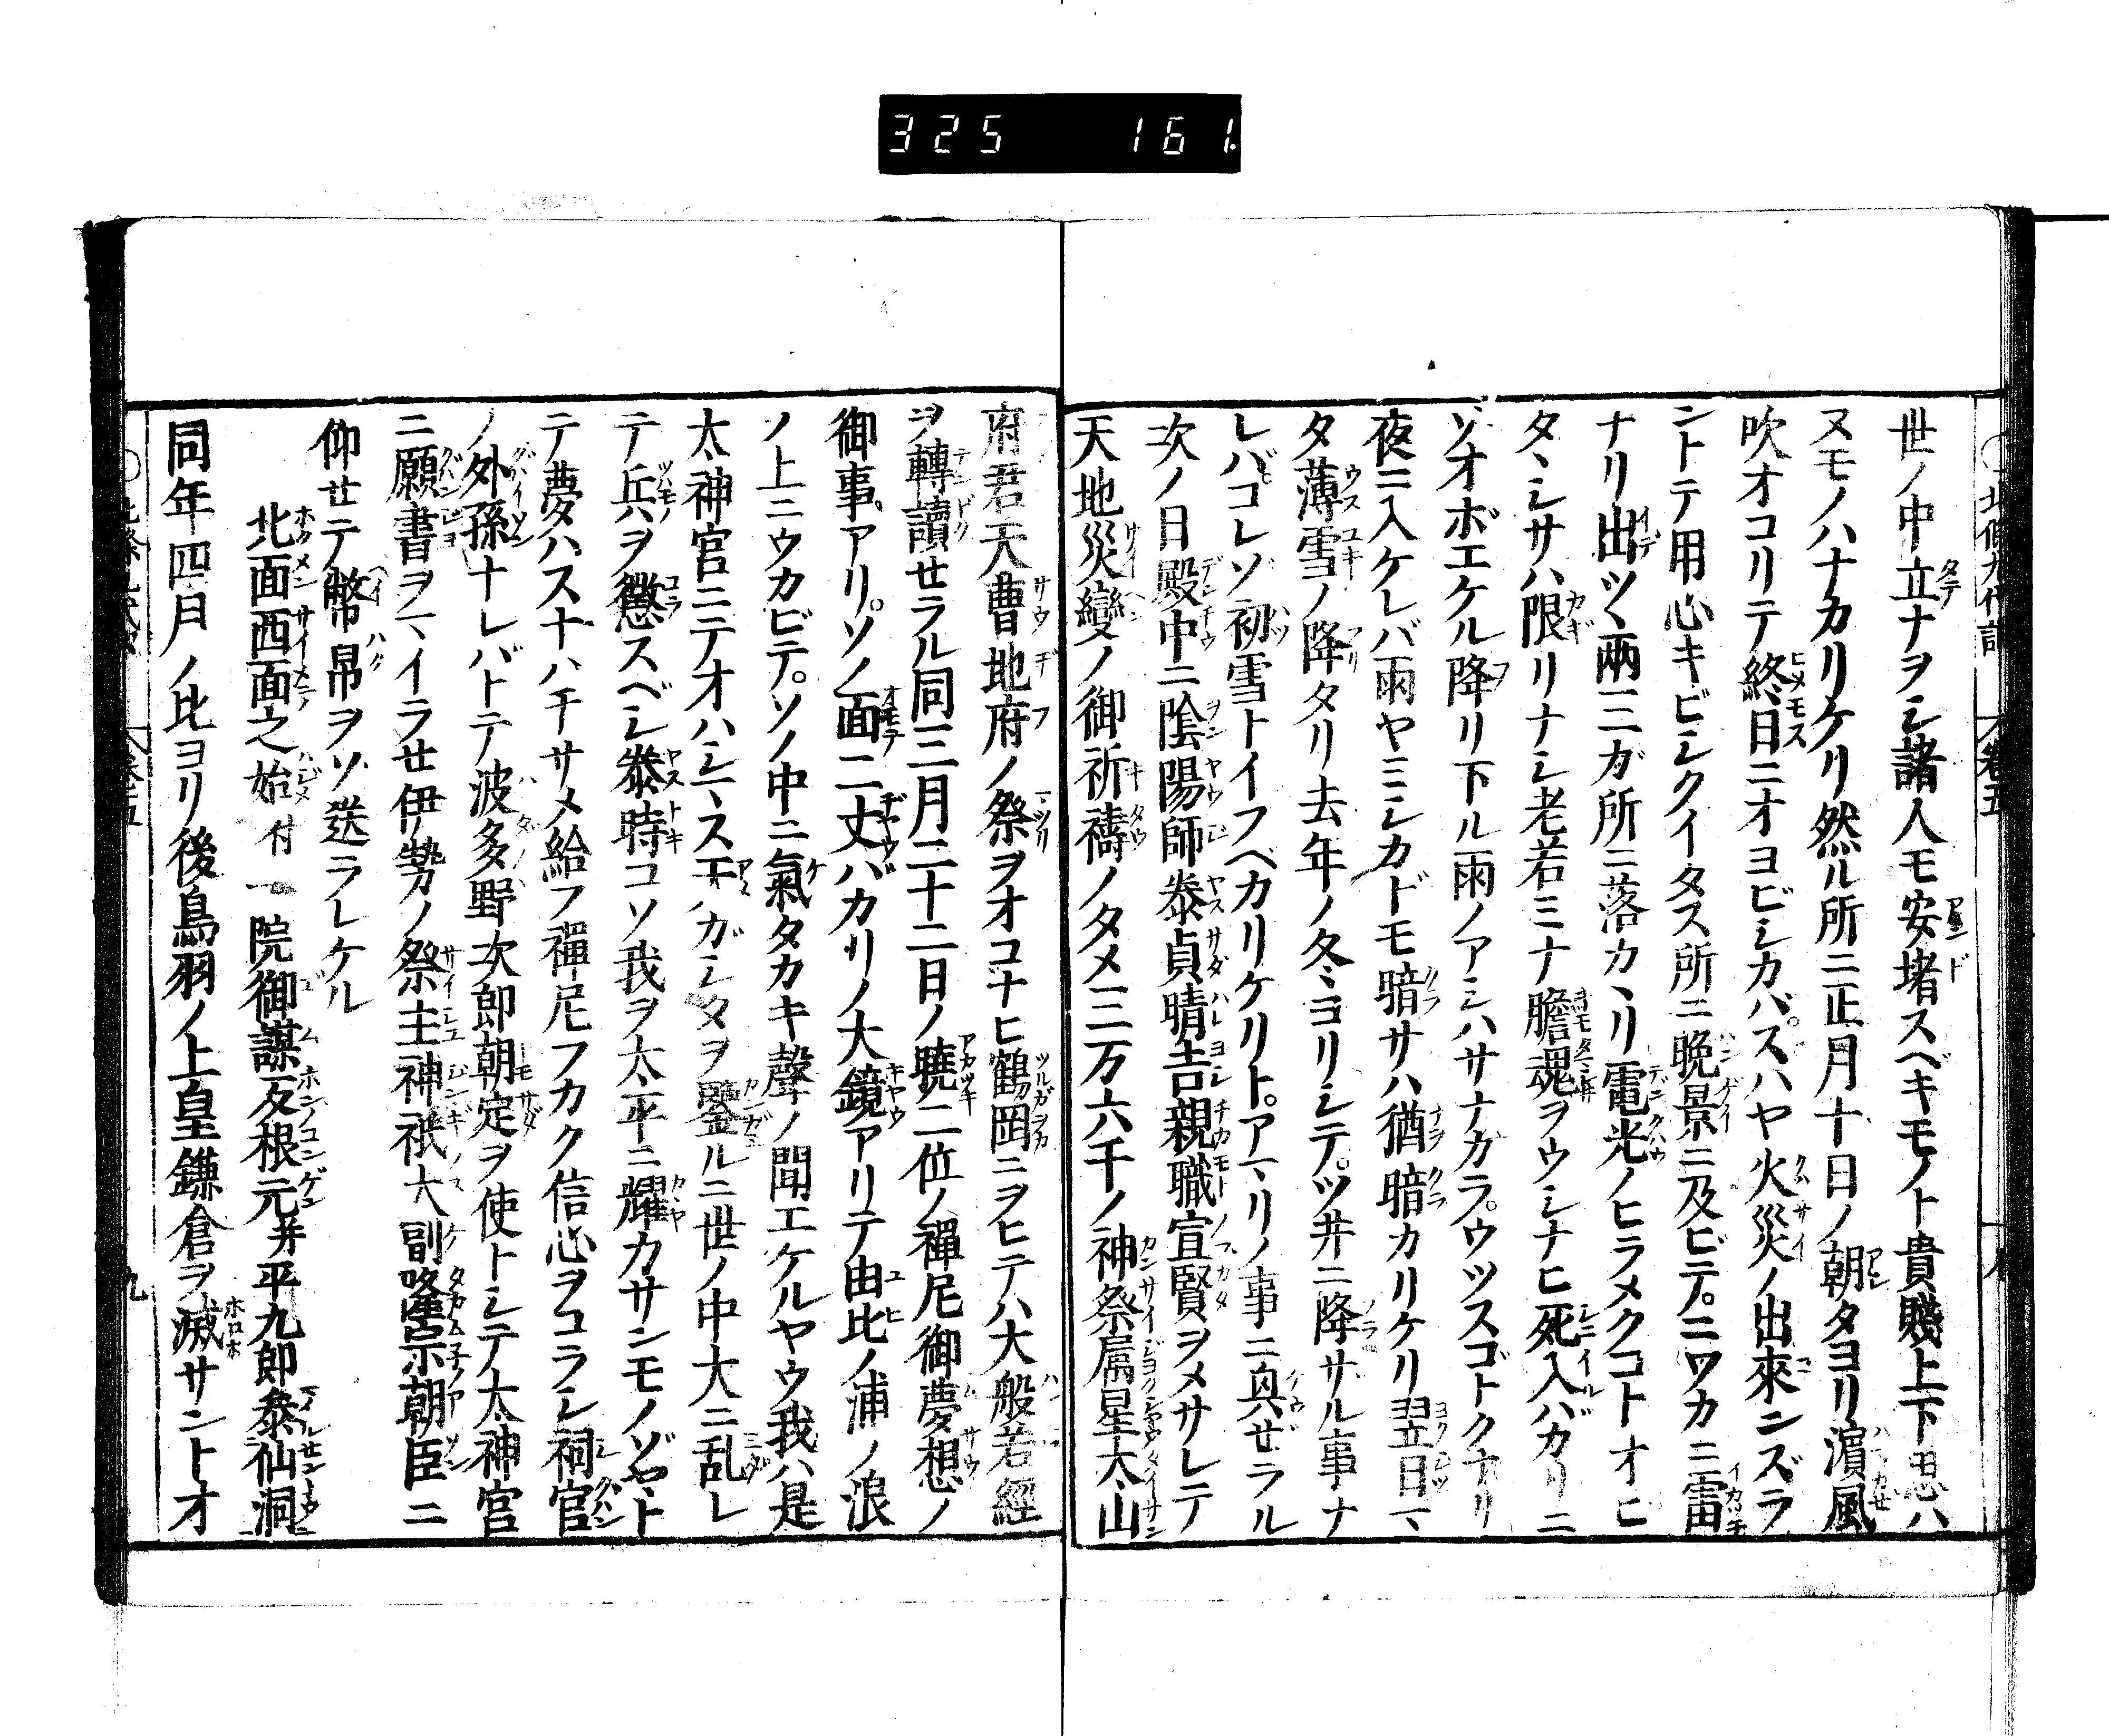 325 161.
世ノ中立ナヲシ諸人モ安堵スベキモノト貴賤上下思ハ
ヌモノハナカリケリ然ル所ニ正月十日ノ朝タヨリ濵風
吹オコリテ終日ニオヨビシカバスハヤ火災ノ出來ンズラ
ントテ用心キビシクイタス所ニ晩景ニ及ビテニワカニ雷
ナリ出ツヽ兩三ガ所ニ落カヽリ電光ノヒラメクコトオヒ
タヽシサハ限リナシ老若ミナ膽魂ヲウシナヒ死入バカリニ
ゾオボエケル降リ下ル雨ノアシハサナガラウツスゴトクナリ
夜ニ入ケレバ雨ヤミシカドモ暗サハ猶暗カリケリ翌日マ
タ薄雪ノ降タリ去年ノ冬ヨリシテツ井ニ降サル事ナ
レバコレソ初雪トイフベカリケリトアマリノ事ニ興ゼラル
次ノ日殿中ニ陰陽師泰貞晴吉親職宣賢ヲメサレテ
天地災變ノ御祈禱ノタメ三万六千ノ神祭属星太山
府君天曹地府ノ祭ヲオコナヒ鶴岡ニヲヒテハ大般若經
ヲ轉讀セラル同三月二十二日ノ曉二位ノ禪尼御夢想ノ
御事アリソノ面二丈バカリノ大鏡アリテ由比ノ浦ノ浪
ノ上ニウカビテソノ中ニ氣タカキ聲ノ聞エケルヤウ我ハ是
太神官ニテオハシマス天ガシタヲ鑒ルニ世ノ中大ニ乱レ
テ兵ヲ懲スベシ泰時コソ我ヲ太平ニ耀カサンモノゾヤト
テ夢ハスナハチサメ給フ禪尼フカク信心ヲコラシ祠官
ノ外孫ナレバトテ波多野次郎朝定ヲ使トシテ太神官
ニ願書ヲマイラセ伊勢ノ祭主神祇大副隆宗朝臣ニ
仰セテ幣帛ヲソ送ラレケル
北面西面之始付一院御謀反根元并平九郎泰仙洞
同年四月ノ比ヨリ後鳥羽ノ上皇鎌倉ヲ滅サントオ